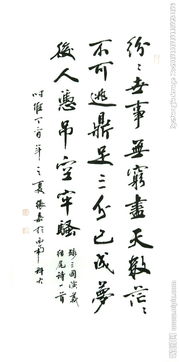 紛〻世事無窮盡天數茫〻
不可逃鼎足三分已成夢
後人憑吊空牢騷
錄三国演義
结尾诗一首
时維丁酉年之夏張於西南科大